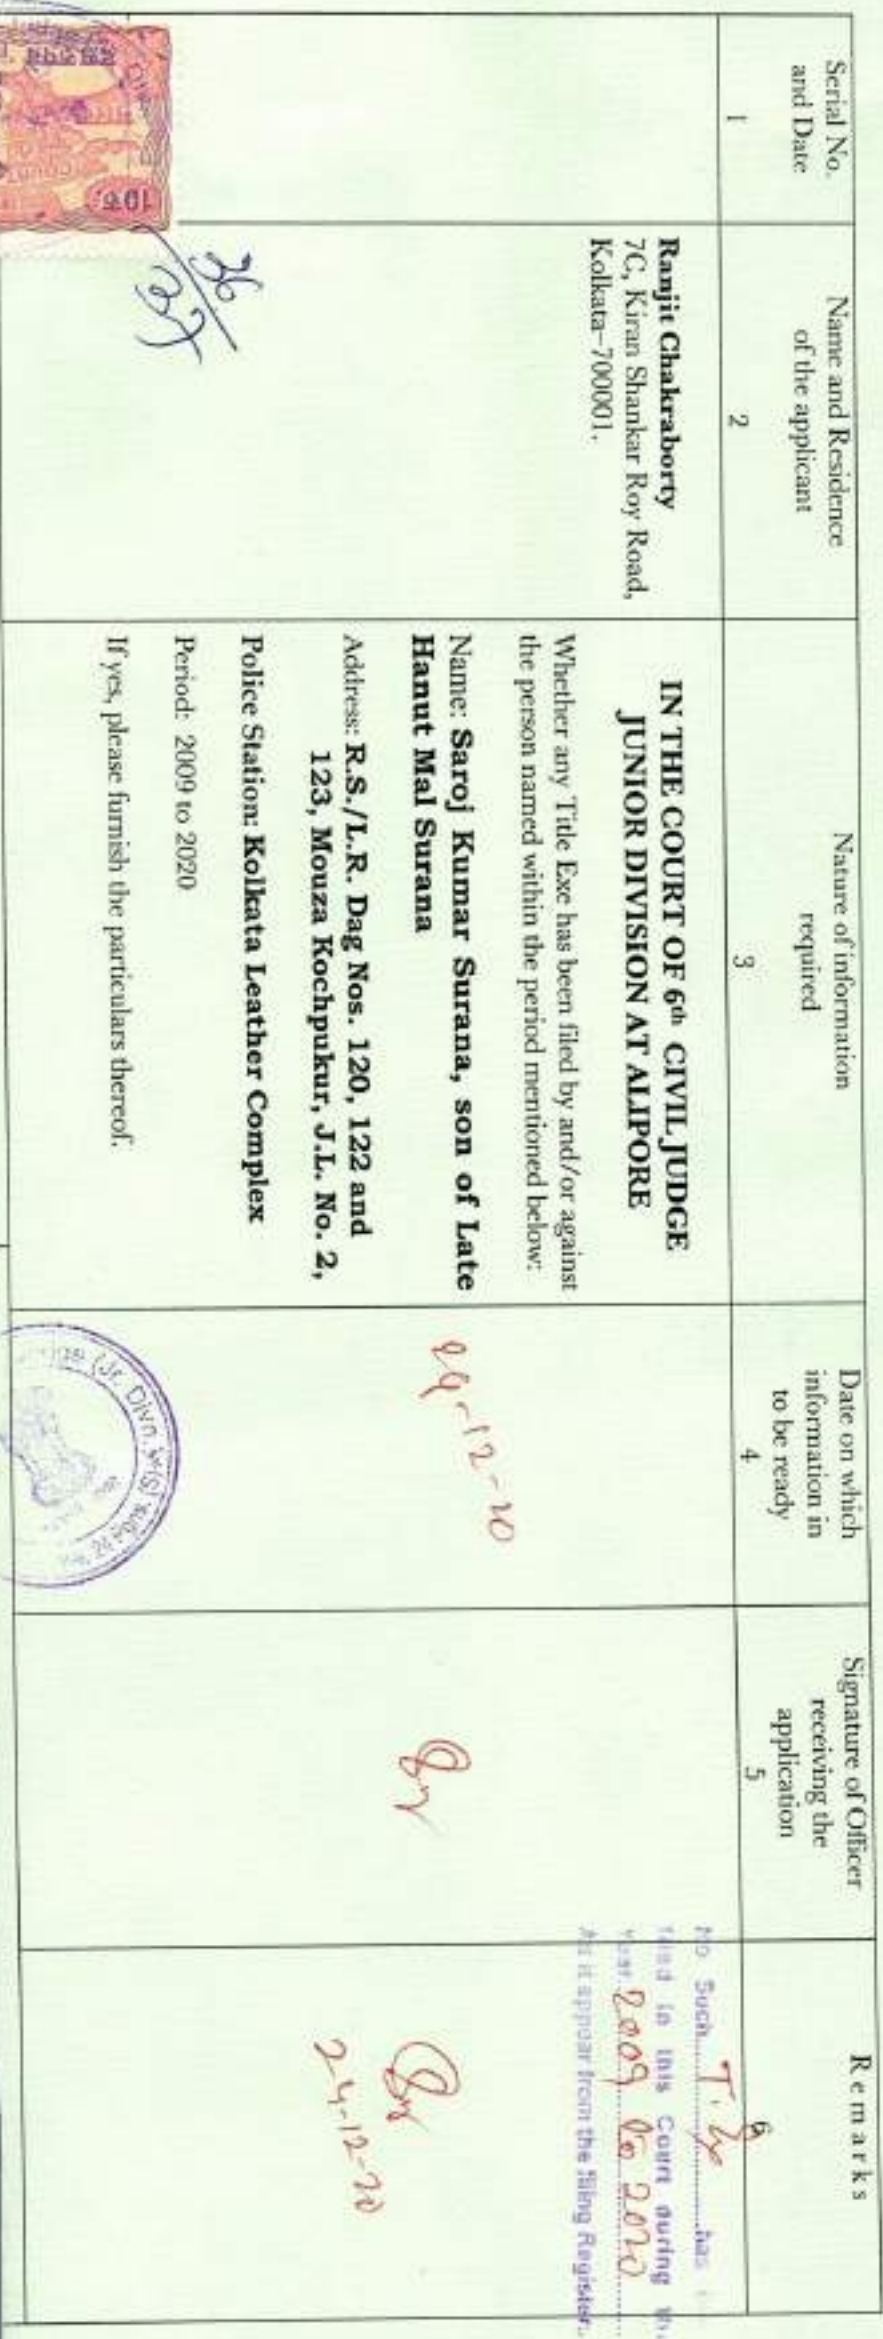 Serial No.
and Date
Name and Residence
of the applicant
Nature of information
required
Date on which
information in
to be ready
Signature of Officer
receiving the
application
Remarks
1
2
3
4
5
6
Ranjit Chakraborty
7C, Kiran Shankar Roy Road,
Kolkata-700001.
IN THE COURT OF 6th CIVIL JUDGE
JUNIOR DIVISION AT ALIPORE
Whether any Title Exe has been filed by and/or against
the person named within the period mentioned below:
Name: Saroj Kumar Surana, son of Late
Hanut Mal Surana
Address: R.S./L.R. Dag Nos. 120, 122 and
123, Mouza Kochpukur, J.L. No. 2,
Police Station: Kolkata Leather Complex
Period: 2009 to 2020
If yes, please furnish the particulars thereof.
24-12-20
No Such T. Ex has
filed in this Court during the
year 2009 to 2020
As it appear from the filing Register.
24-12-20
36/37
(Jr. Divn.